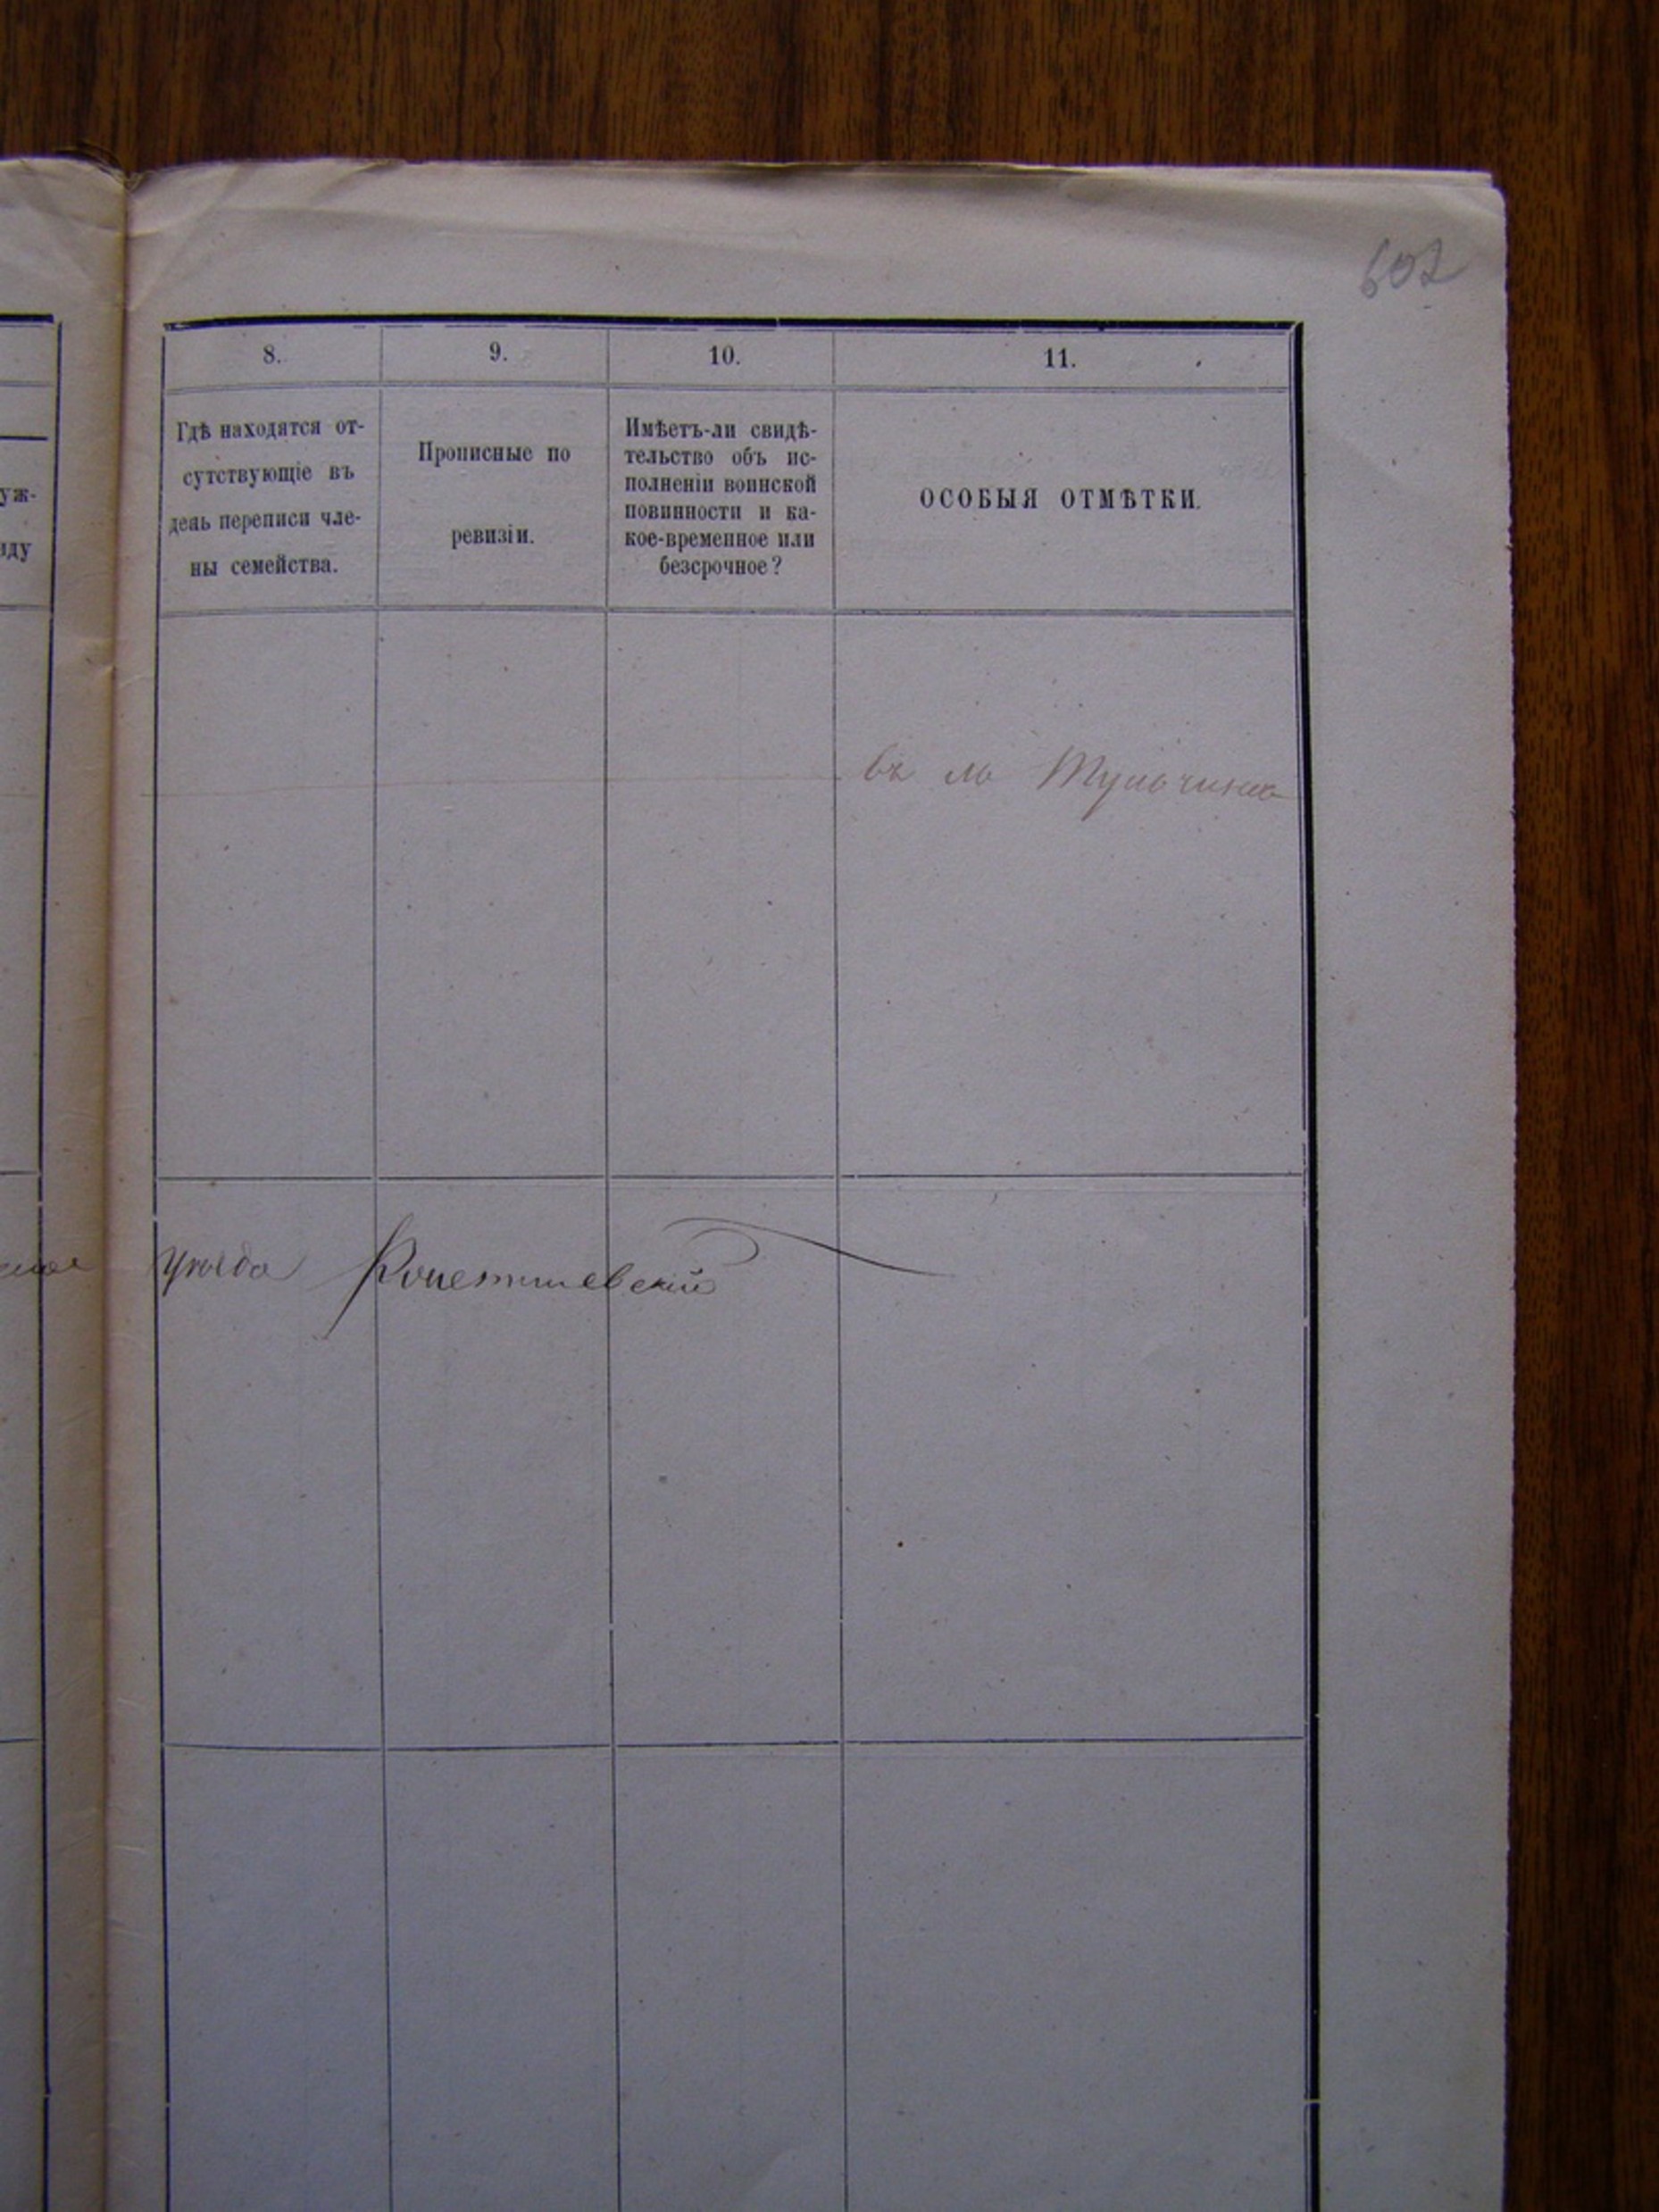 602
8.
9.
10.
11.
Гдѣ находятся от-
сутствующіе въ
день переписи чле-
ны семейства.
Прописные по
ревизіи.
Имѣетъ-ли свидѣ-
тельство объ ис-
полненіи воинской
повинности и ка-
кое-временное или
безсрочное?
ОСОБЫЯ ОТМѢТКИ.
уж-
въ м Тульчина
уѣзда